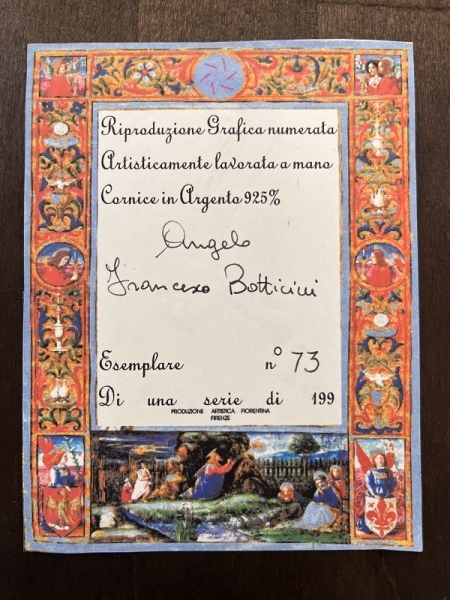 Riproduzione Grafica numerata
Artisticamente lavorata a mano
Cornice in Argento 925%
Angelo
Francesco Botticini
Esemplare n° 73
Di una serie di 199
PRODUZIONE ARTISTICA FIORENTINA
FIRENZE